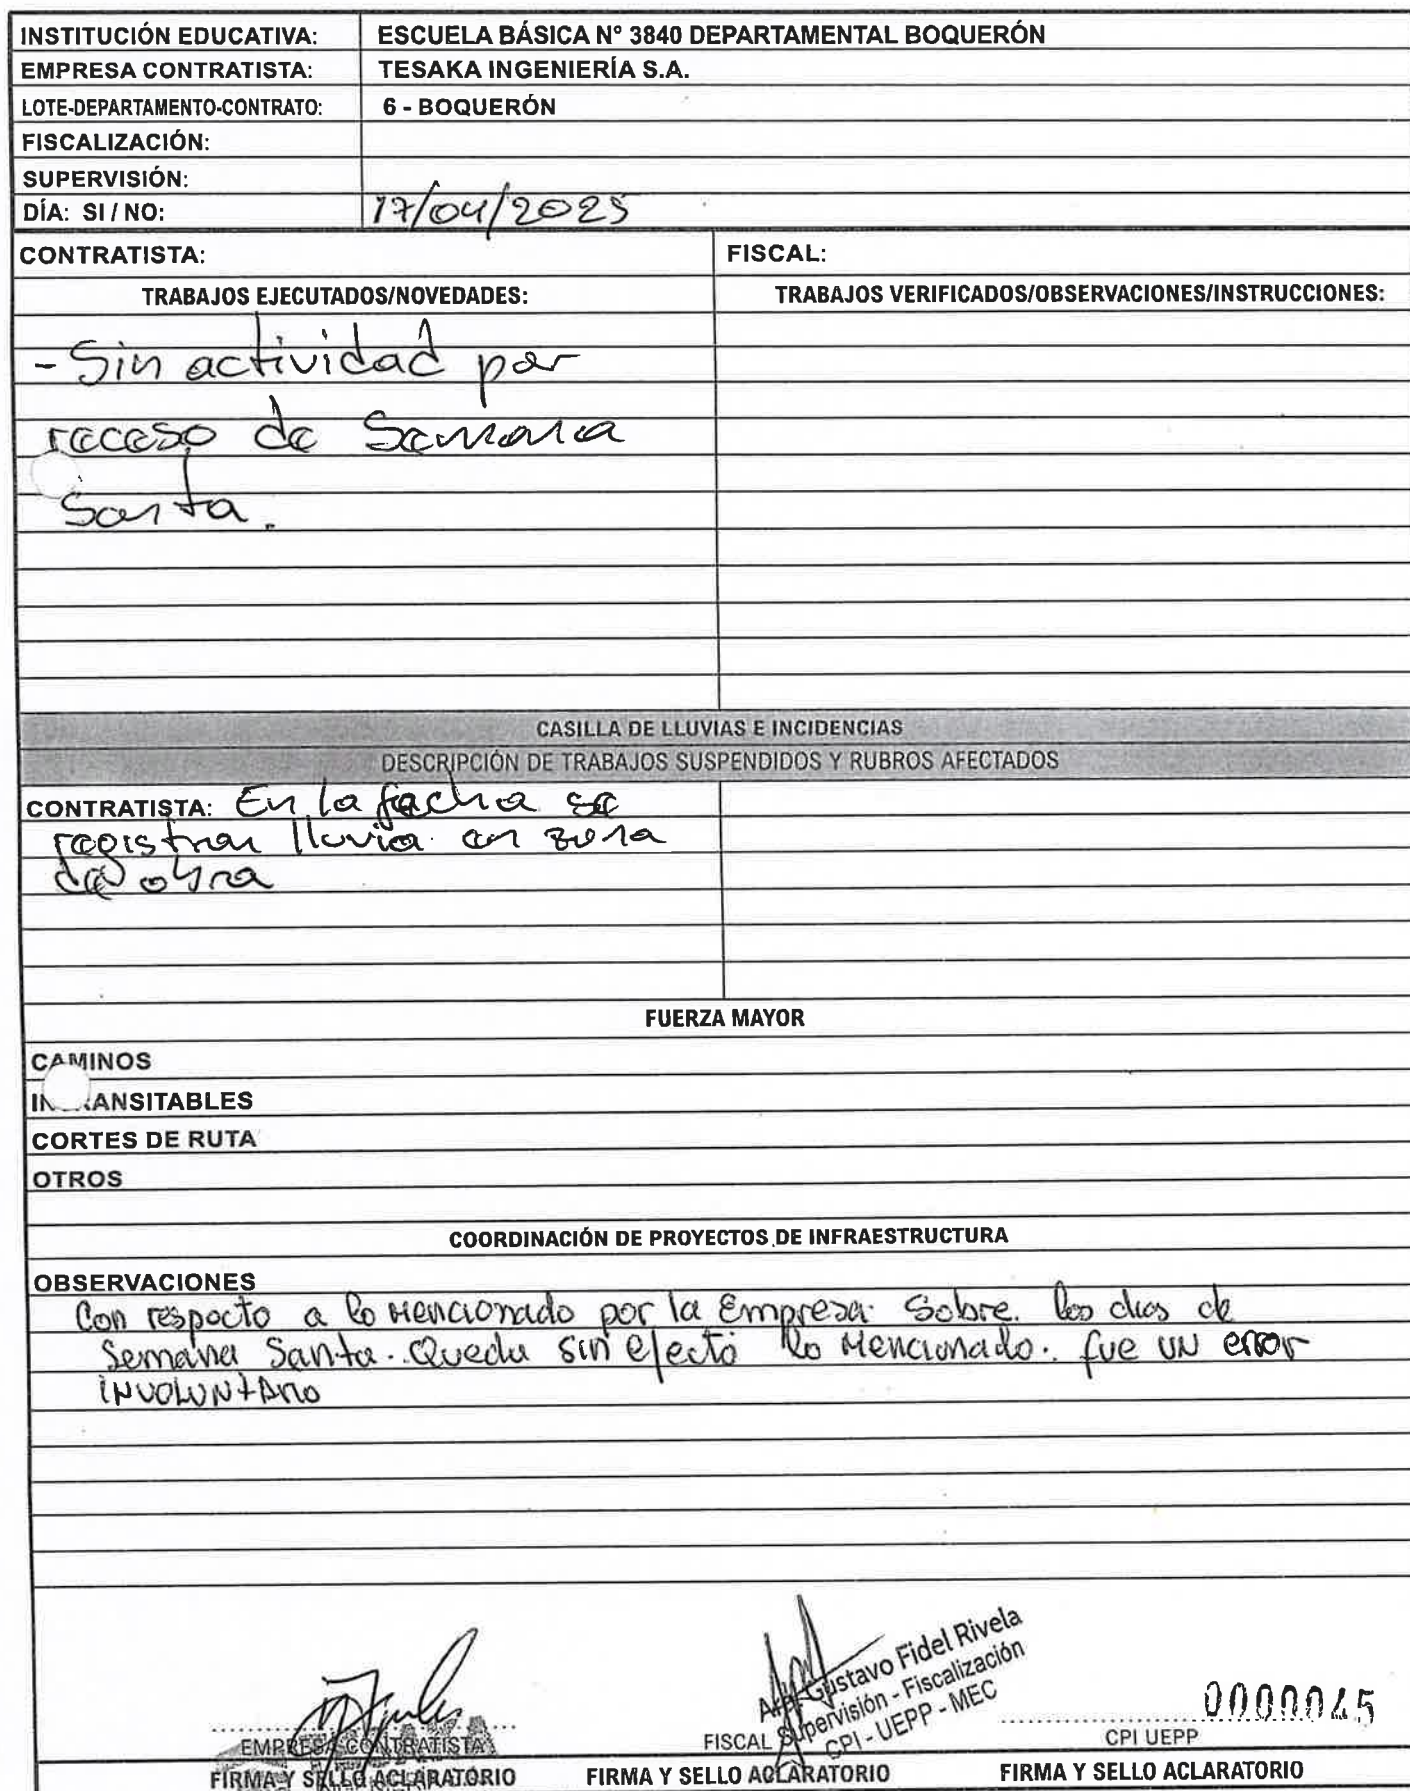 INSTITUCIÓN EDUCATIVA: ESCUELA BÁSICA N° 3840 DEPARTAMENTAL BOQUERÓN
EMPRESA CONTRATISTA: TESAKA INGENIERÍA S.A.
LOTE-DEPARTAMENTO-CONTRATO: 6 - BOQUERÓN
FISCALIZACIÓN:
SUPERVISIÓN:
DÍA: SI / NO: 17/04/2025
CONTRATISTA: FISCAL:
TRABAJOS EJECUTADOS/NOVEDADES: TRABAJOS VERIFICADOS/OBSERVACIONES/INSTRUCCIONES:
- Sin actividad por
receso de Semana
Santa.
CASILLA DE LLUVIAS E INCIDENCIAS
DESCRIPCIÓN DE TRABAJOS SUSPENDIDOS Y RUBROS AFECTADOS
CONTRATISTA: En la fecha se
registran lluvia en zona
de obra
FUERZA MAYOR
CAMINOS
IN RANSITABLES
CORTES DE RUTA
OTROS
COORDINACIÓN DE PROYECTOS DE INFRAESTRUCTURA
OBSERVACIONES
Con respecto a lo mencionado por la Empresa. Sobre. los dias de
Semana Santa. Queda sin efecto lo mencionado. fue un error
involuntario
Gustavo Fidel Rivela
Supervisión - Fiscalización
CPI - UEPP - MEC
0000045
EMPRESA CONTRATISTA FISCAL CPI UEPP
FIRMA Y SELLO ACLARATORIO FIRMA Y SELLO ACLARATORIO FIRMA Y SELLO ACLARATORIO